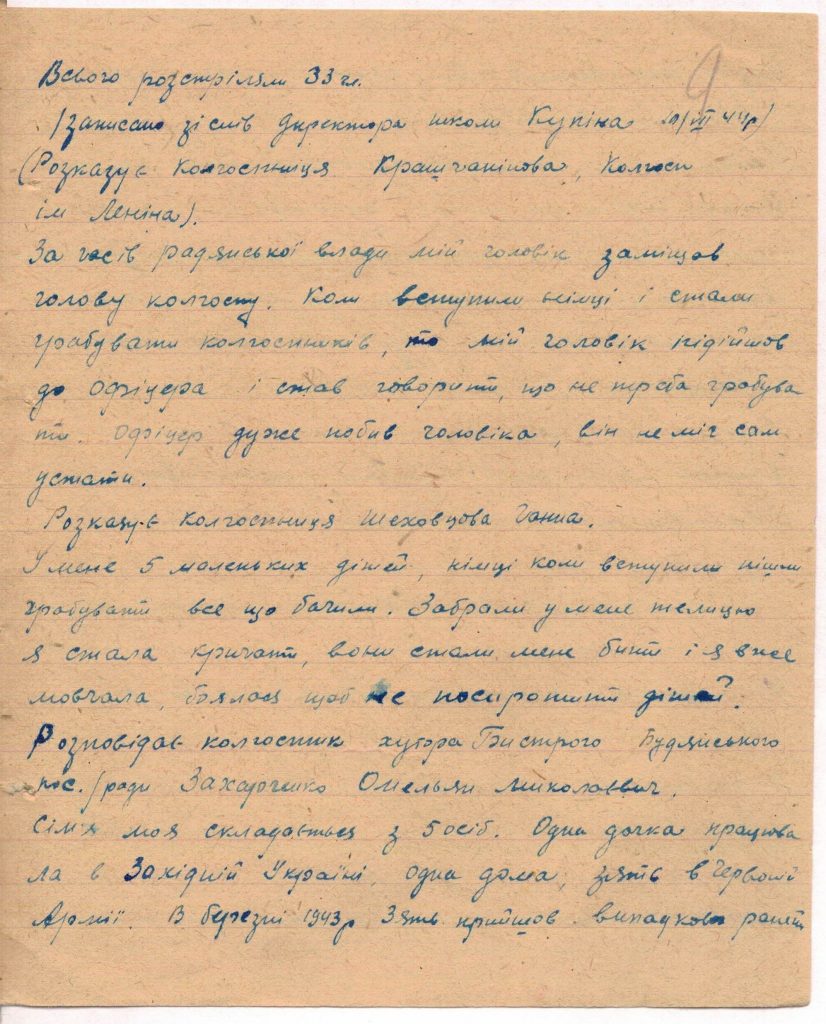 9
Всього розстріляли 33 чл.
/записано зі слів директора школи Купіна 10/VII 44р/
(Розказує колгоспниця Крашчанінова, колгосп
ім Леніна).
За часів радянської влади мій чоловік заміщав
голову колгоспу. Коли вступили німці і стали
грабувати колгоспників, то мій чоловік підійшов
до офіцера і став говорити, що не треба грабува
ти. Офіцер дуже побив чоловіка, він не міг сам
устати.
Розказує колгоспниця Шеховцова Ганна.
У мене 5 маленьких дітей, німці коли вступили пішли
грабувати все що бачили. Забрали у мене телицю
я стала кричати, вони стали мене бити і я вже
мовчала, боялася щоб не посиротити дітей.
Розповідає колгоспник хутора Бистрого Будянського
пос./ради Захарченко Омельян Миколаєвич.
Сім'я моя складається з 5 осіб. Одна дочка працюва
ла в Західній Україні, одна дома, зять в Червоній
Армії. В березні 1943р зять прийшов випадково ранет